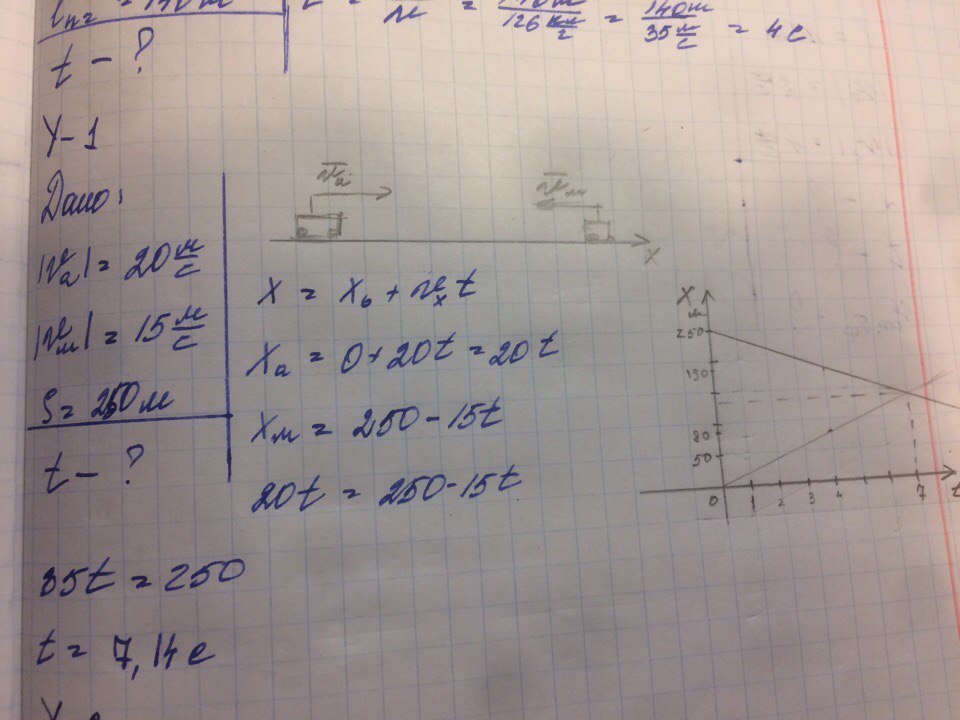 = 140м
= 140м / 126 км/г = 140м / 35 м/с = 4 с.
t - ?
У-1
Дано:
|v̅а| = 20 м/с
|v̅м| = 15 м/с
S = 250 м
t - ?
v̅а
v̅м
X
X = X₀ + vₓt
Xа = 0 + 20t = 20t
Xм = 250 - 15t
20t = 250 - 15t
35t = 250
t = 7,14 с
X
м
250
190
80
50
0 1 2 3 4 7 t